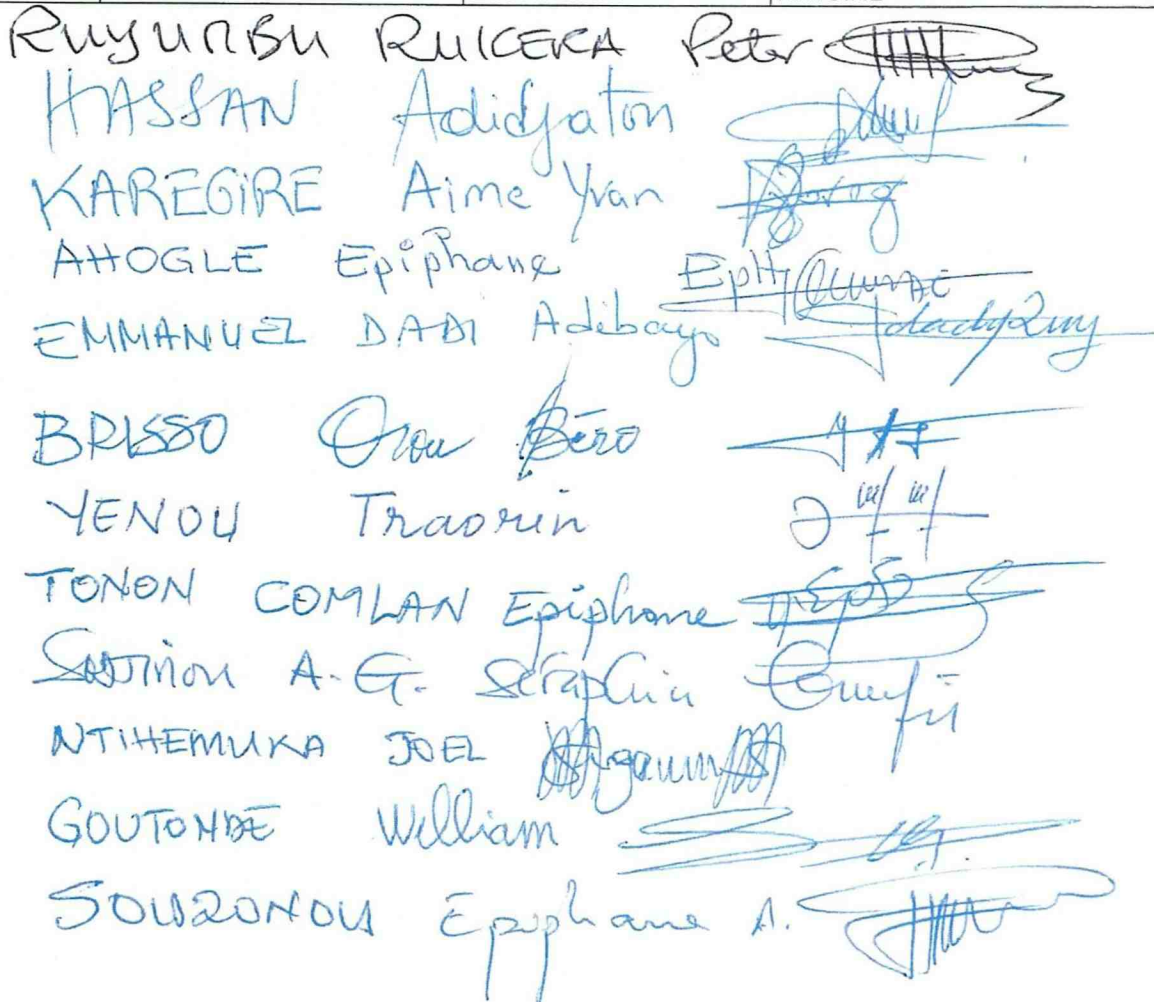 RUYURBU RUKERA Peter
HASSAN Adidjaton
KAREGIRE Aime Yvan
AHOGLE Epiphane
EMMANUEL DADI Adebayo
BRISSO Orou Béro
YENOU Traorin
TONON COMLAN Epiphane
A. G. Séraphin
NTIHEMUKA JOEL
GOUTONDE William
SOUZONOU Epiphane A.